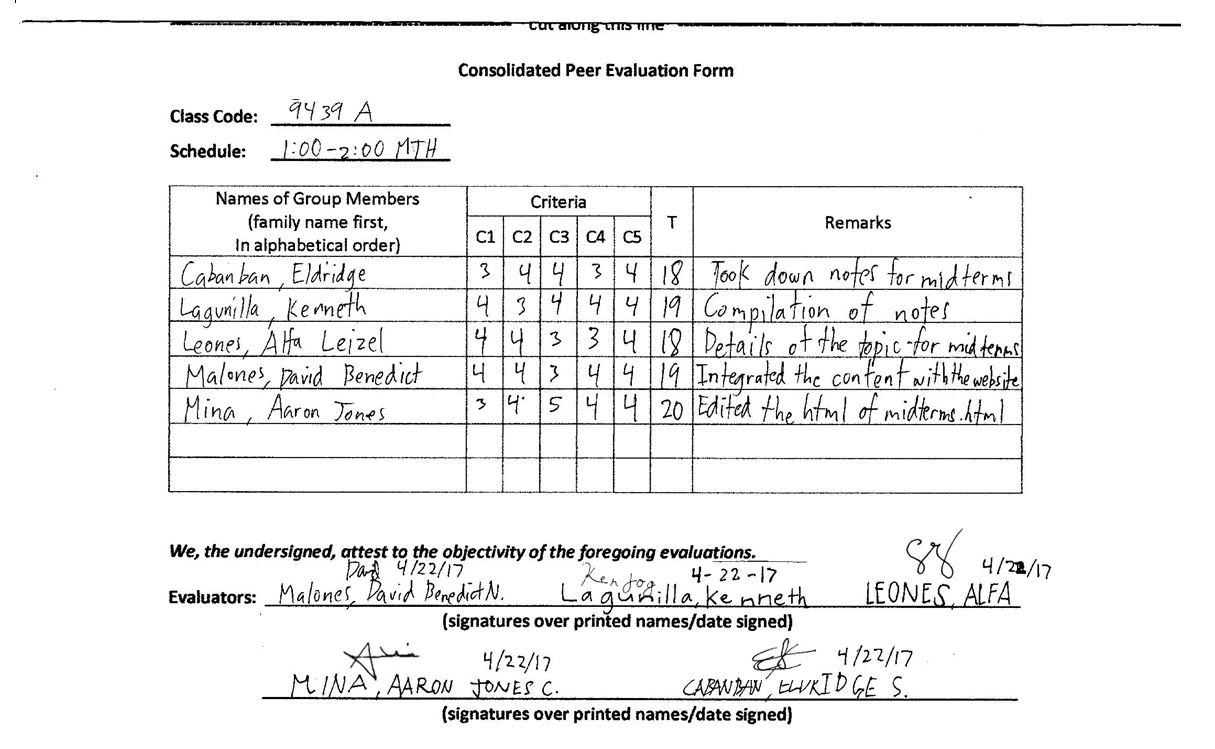 cut along this line
Consolidated Peer Evaluation Form
Class Code: 9439 A
Schedule: 1:00-2:00 MTH
Names of Group Members
(family name first,
In alphabetical order)
Criteria
T
Remarks
C1 C2 C3 C4 C5
Cabanban, Eldridge 3 4 4 3 4 18 Took down notes for midterms
Lagunilla, Kenneth 4 3 4 4 4 19 Compilation of notes
Leones, Alfa Leizel 4 4 3 3 4 18 Details of the topic for midterms
Malones, David Benedict 4 4 3 4 4 19 Integrated the content with the website
Mina, Aaron Jones 3 4 5 4 4 20 Edited the html of midterms.html
We, the undersigned, attest to the objectivity of the foregoing evaluations.
4/22/17 4-22-17 4/22/17
Evaluators: Malones, David Benedict N. Lagunilla, Kenneth LEONES, ALFA
(signatures over printed names/date signed)
4/22/17 4/22/17
MINA, AARON JONES C. CABANBAN, ELDRIDGE S.
(signatures over printed names/date signed)